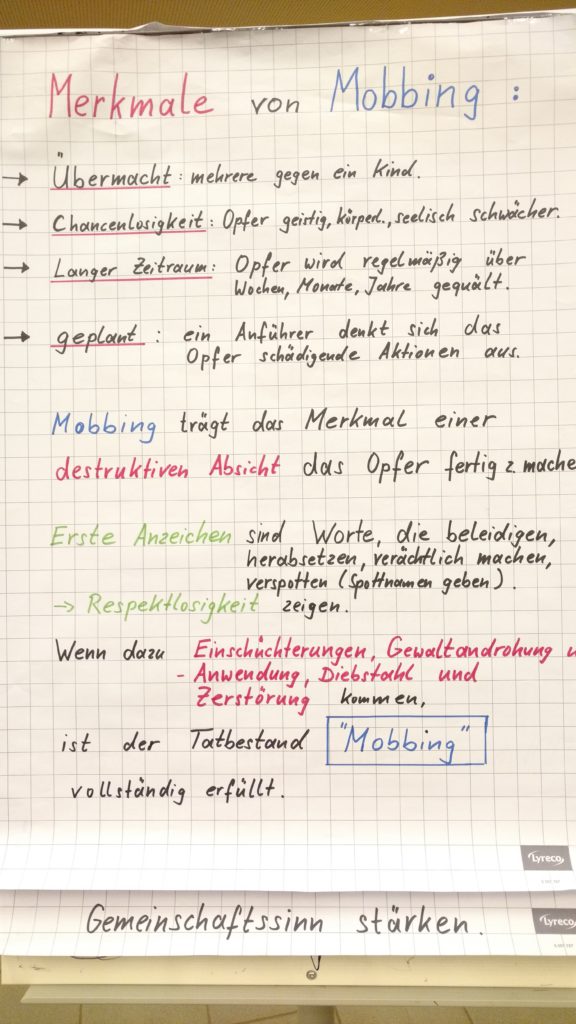 Merkmale von Mobbing :
→ Übermacht : mehrere gegen ein Kind.
→ Chancenlosigkeit : Opfer geistig, körperl., seelisch schwächer.
→ Langer Zeitraum : Opfer wird regelmäßig über
Wochen, Monate, Jahre gequält.
→ geplant : ein Anführer denkt sich das
Opfer schädigende Aktionen aus.
Mobbing trägt das Merkmal einer
destruktiven Absicht das Opfer fertig z. mache
Erste Anzeichen sind Worte, die beleidigen,
herabsetzen, verächtlich machen,
verspotten (Spottnamen geben).
→ Respektlosigkeit zeigen.
Wenn dazu Einschüchterungen, Gewaltandrohung u
- Anwendung, Diebstahl und
Zerstörung kommen,
ist der Tatbestand "Mobbing"
vollständig erfüllt.
Lyreco
Gemeinschaftssinn stärken.
Lyreco